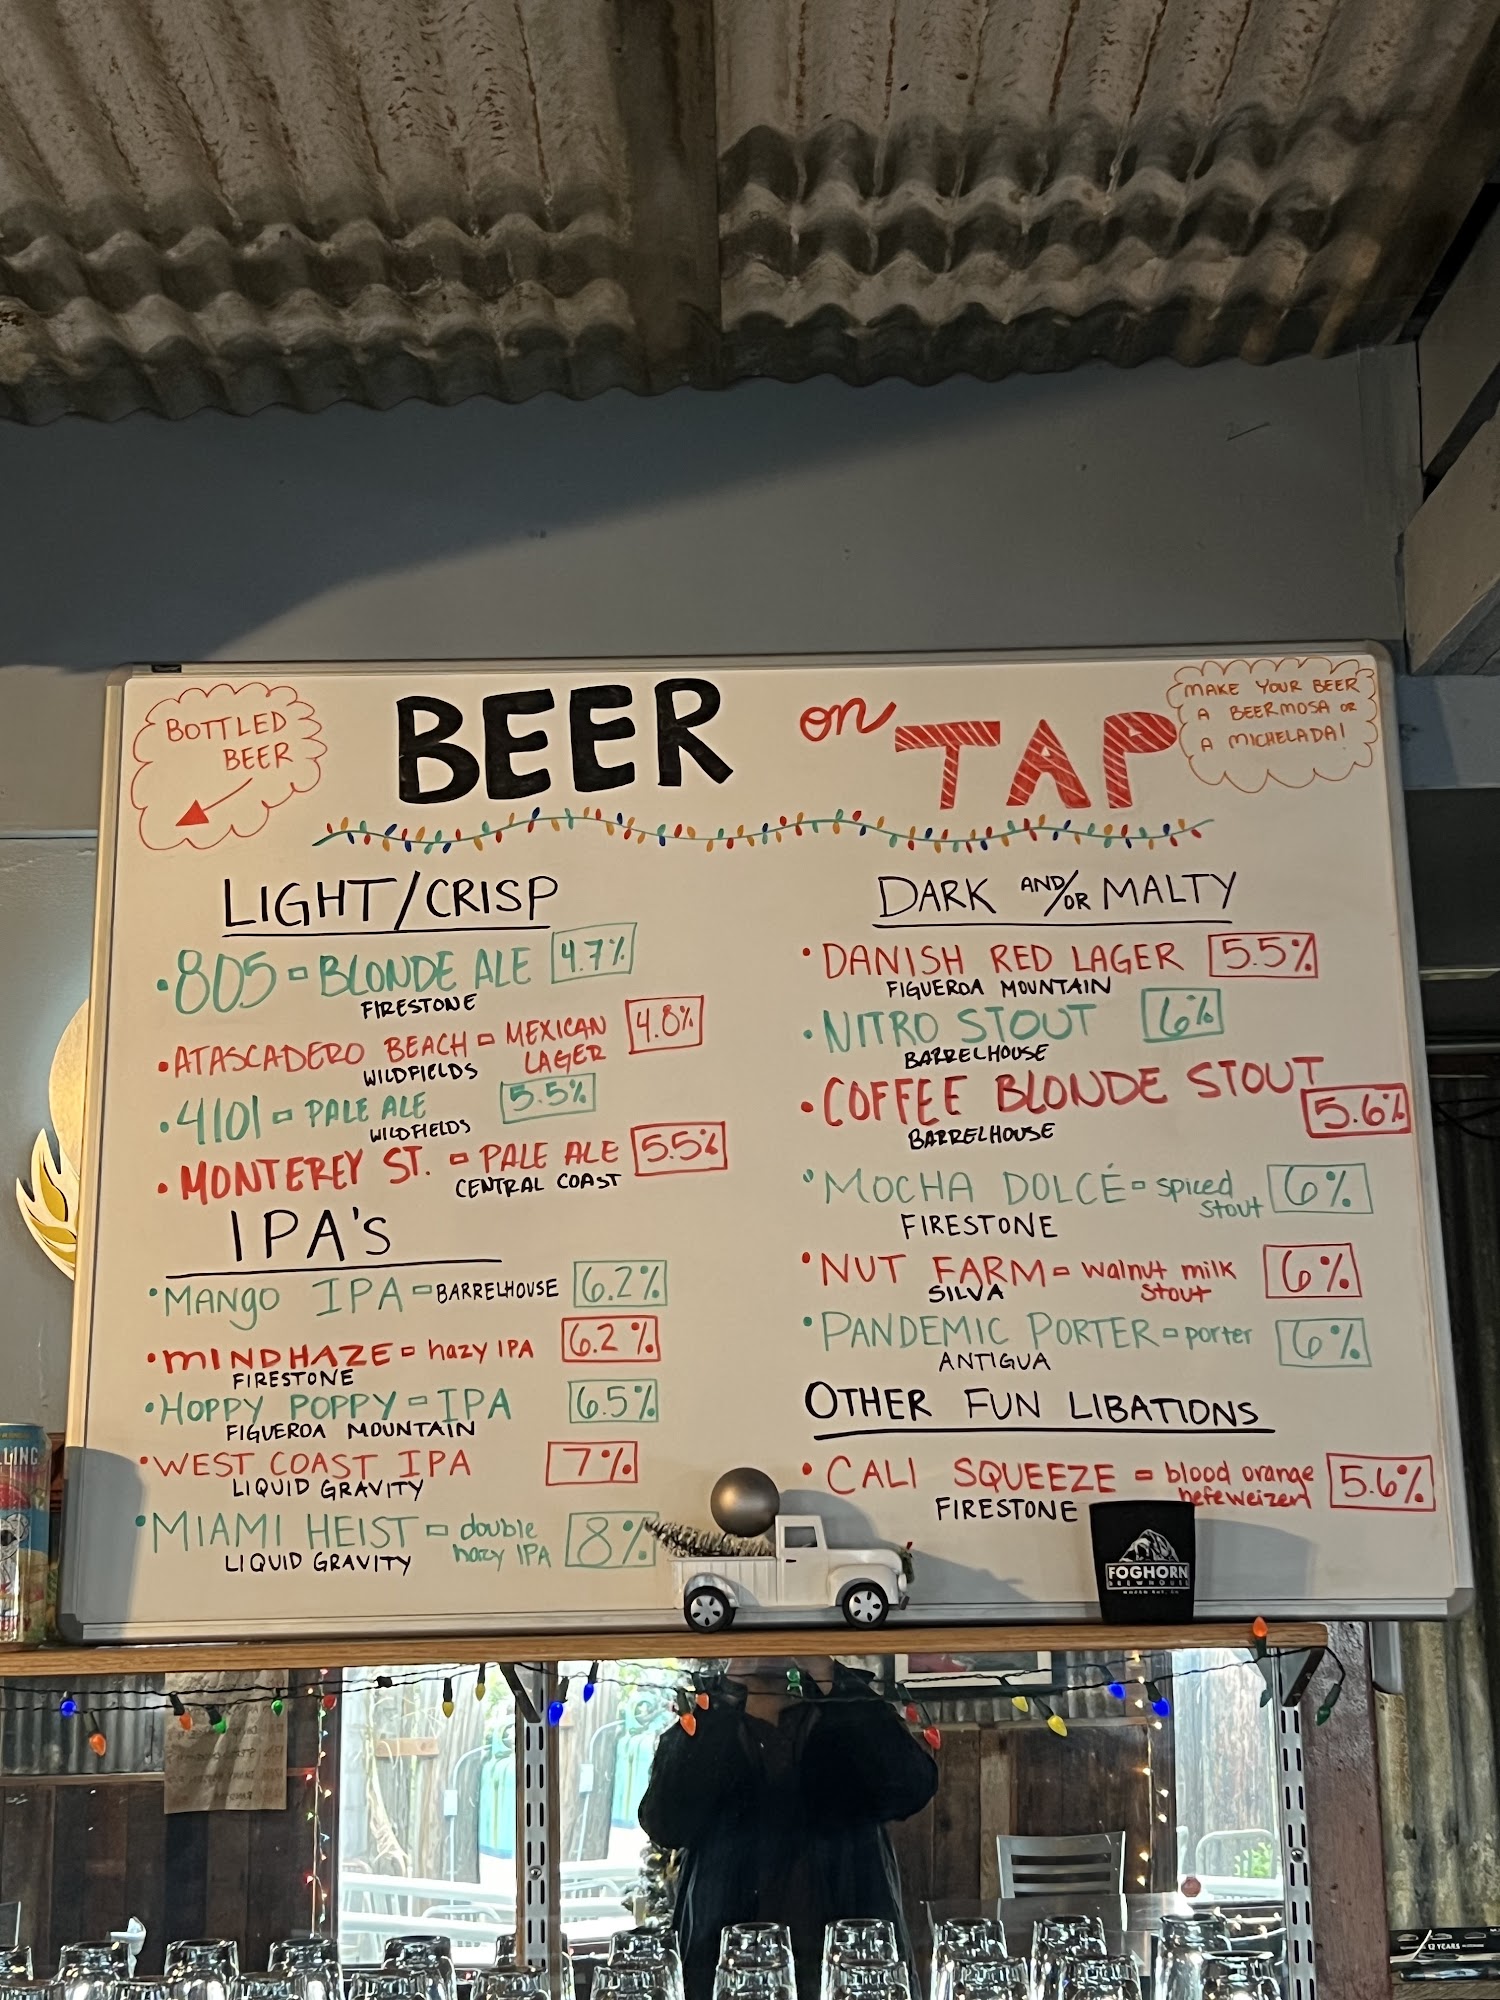 BOTTLED
BEER
BEER on TAP
MAKE YOUR BEER
A BEERMOSA OR
A MICHELADA!
LIGHT/CRISP
• 805 - BLONDE ALE 4.7%
FIRESTONE
• ATASCADERO BEACH - MEXICAN LAGER 4.8%
WILDFIELDS
• 4101 - PALE ALE 5.5%
WILDFIELDS
• MONTEREY ST. - PALE ALE 5.5%
CENTRAL COAST
IPA's
• MANGO IPA - BARRELHOUSE 6.2%
• MINDHAZE - hazy IPA 6.2%
FIRESTONE
• HOPPY POPPY - IPA 6.5%
FIGUEROA MOUNTAIN
• WEST COAST IPA 7%
LIQUID GRAVITY
• MIAMI HEIST - double hazy IPA 8%
LIQUID GRAVITY
DARK AND/OR MALTY
• DANISH RED LAGER 5.5%
FIGUEROA MOUNTAIN
• NITRO STOUT 6%
BARRELHOUSE
• COFFEE BLONDE STOUT 5.6%
BARRELHOUSE
• MOCHA DOLCÉ - spiced stout 6%
FIRESTONE
• NUT FARM - walnut milk stout 6%
SILVA
• PANDEMIC PORTER - porter 6%
ANTIGUA
OTHER FUN LIBATIONS
• CALI SQUEEZE - blood orange hefeweizen 5.6%
FIRESTONE
FOGHORN
BREWHOUSE
12 YEARS